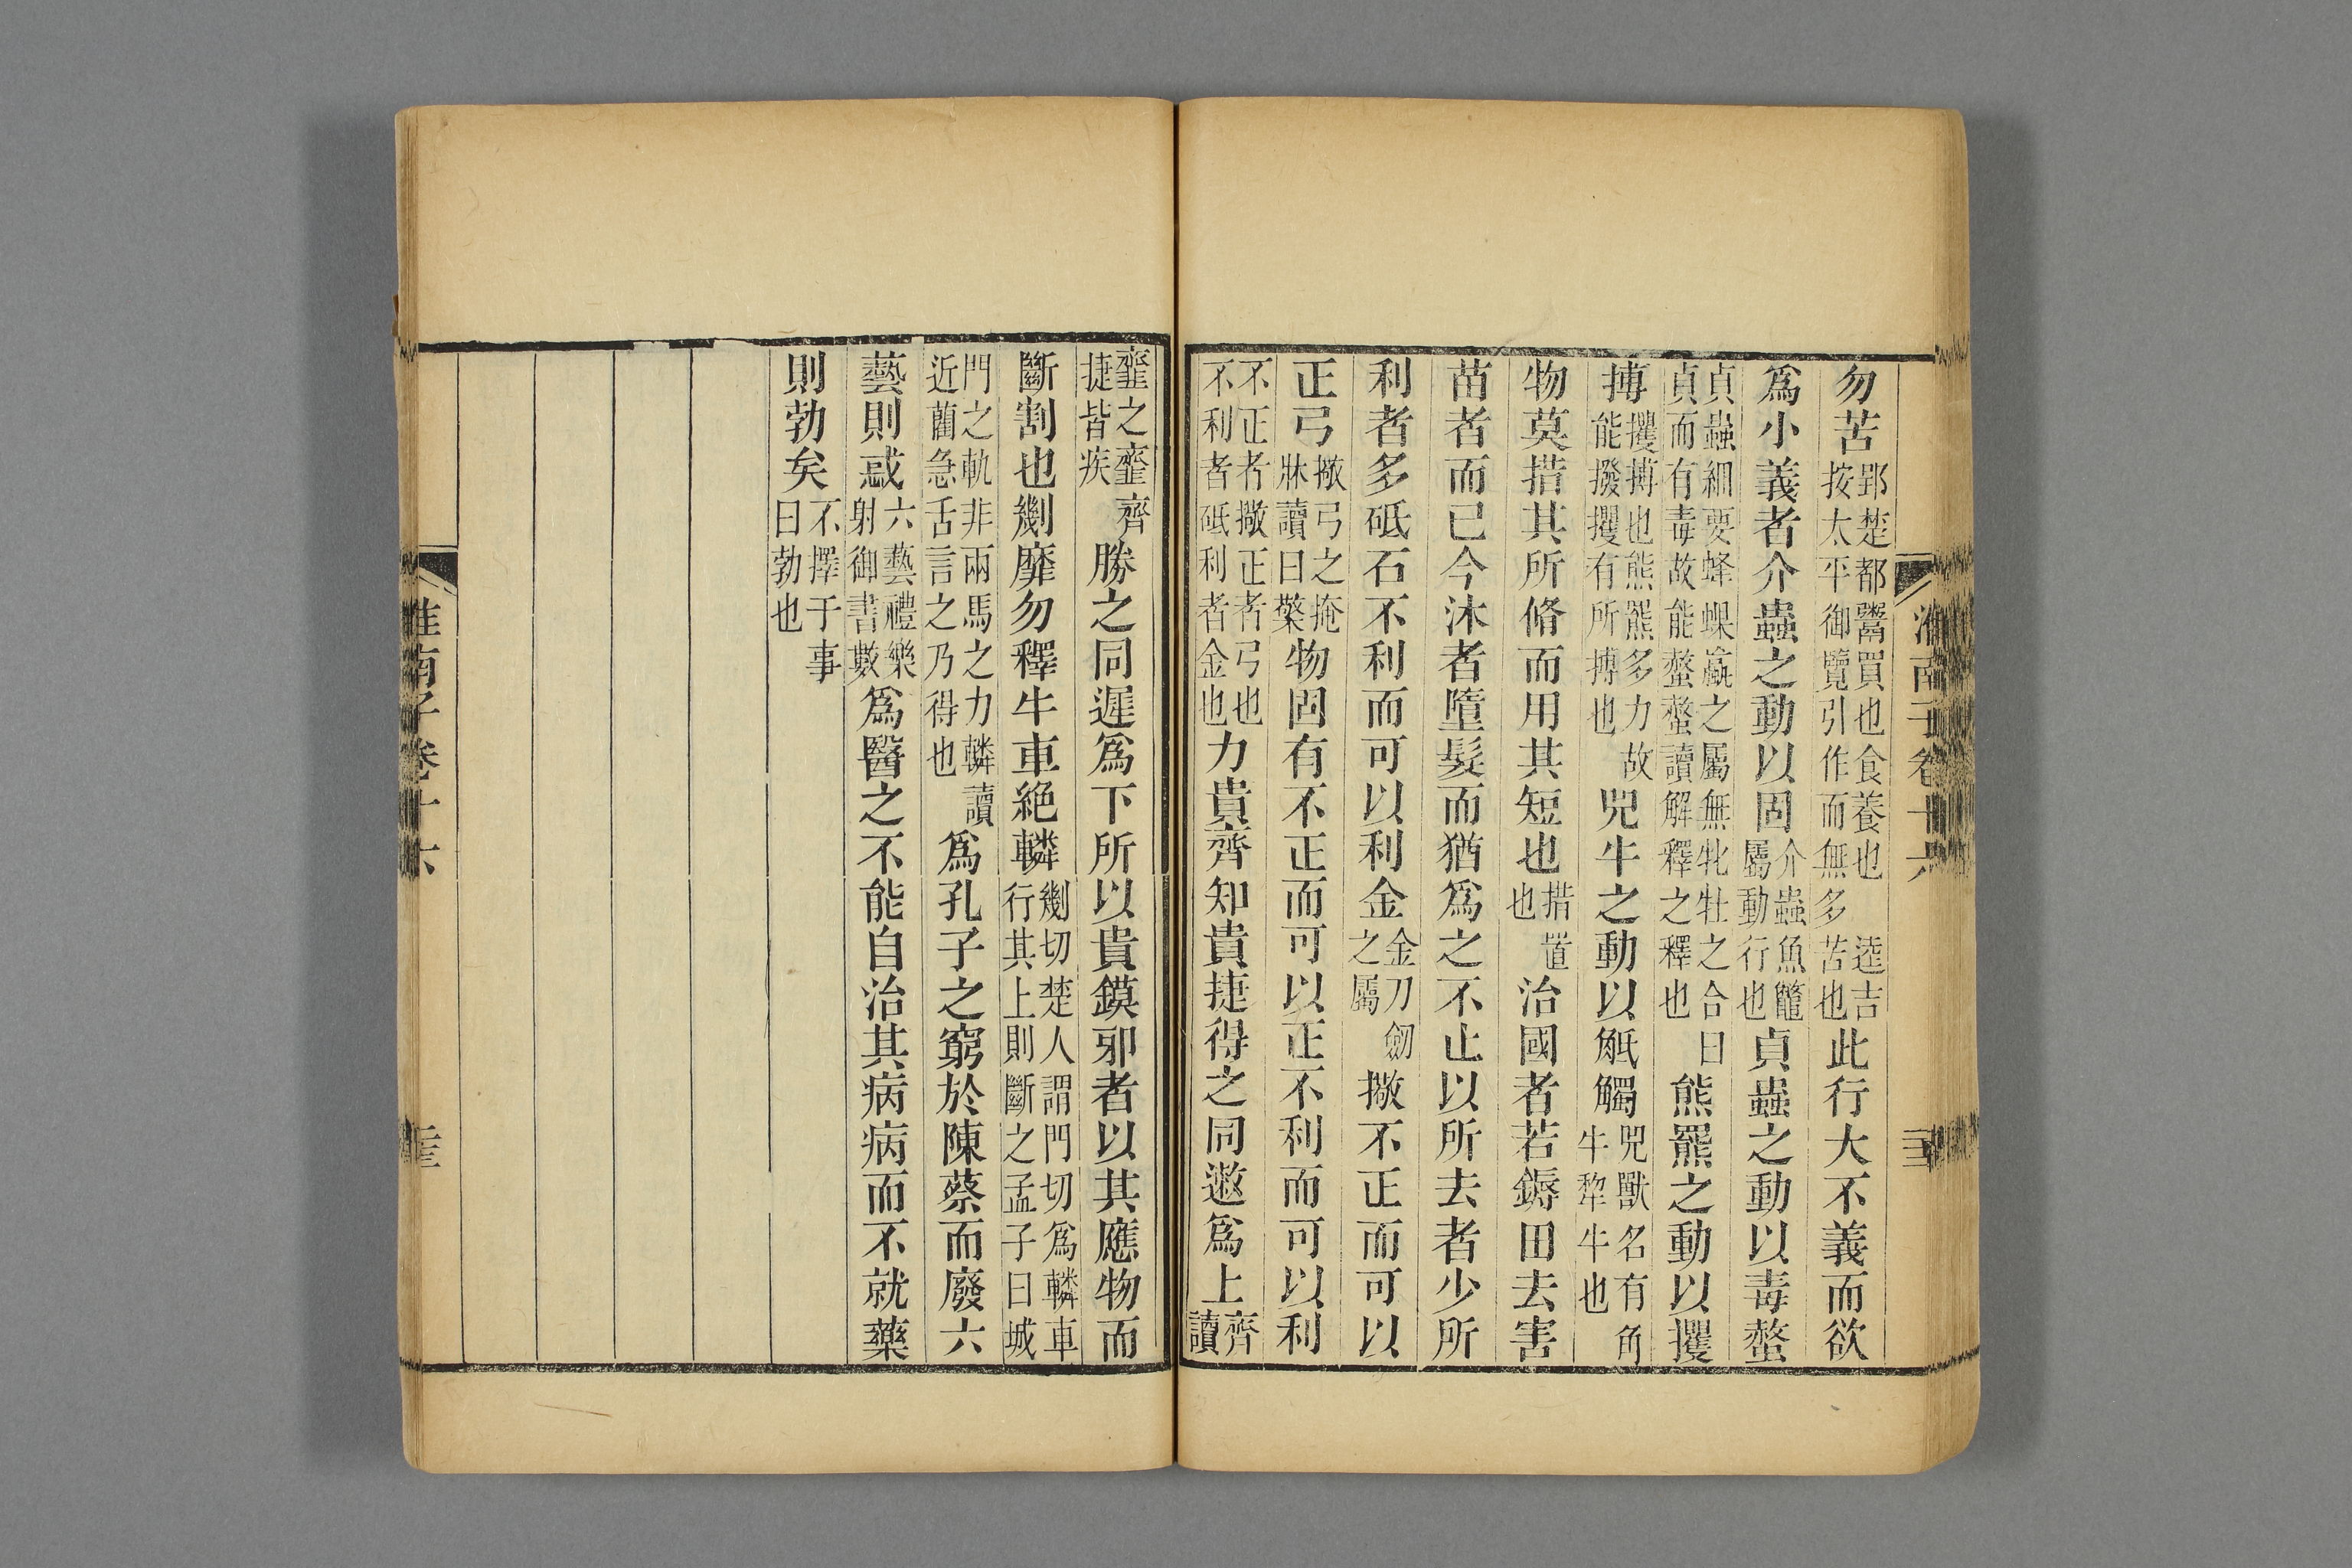 淮南子卷十六
勿苦郢楚都鬻買也食養也逵吉按太平御覽引作而無多苦也此行大不義而欲
爲小義者介蟲之動以固介蟲魚鼈屬動行也貞蟲之動以毒螫
貞蟲細要蜂蜾蠃之屬無牝牡之合曰貞而有毒故能螫螫讀解釋之釋也熊羆之動以攫
搏攫搏也熊羆多力故能撥攫有所搏也兕牛之動以觝觸兕獸名有角牛犂牛也
物莫措其所脩而用其短也措置也治國者若鎒田去害
苗者而已今沐者墮髮而猶爲之不止以所去者少所
利者多砥石不利而可以利金金刀劒之屬撒不正而可以
正弓撒弓之掩牀讀曰檠物固有不正而可以正不利而可以利
不正者撒正者弓也不利者砥利者金也力貴齊知貴捷得之同遬爲上齊讀
虀之虀齊捷皆疾勝之同遲爲下所以貴鏌邪者以其應物而
斷割也劖靡勿釋牛車絕轔劖切楚人謂門切爲轔車行其上則斷之孟子曰城
門之軌非兩馬之力轔讀近藺急舌言之乃得也爲孔子之窮於陳蔡而廢六
藝則惑六藝禮樂射御書數爲醫之不能自治其病病而不就藥
則勃矣不擇于事曰勃也
淮南子卷十六